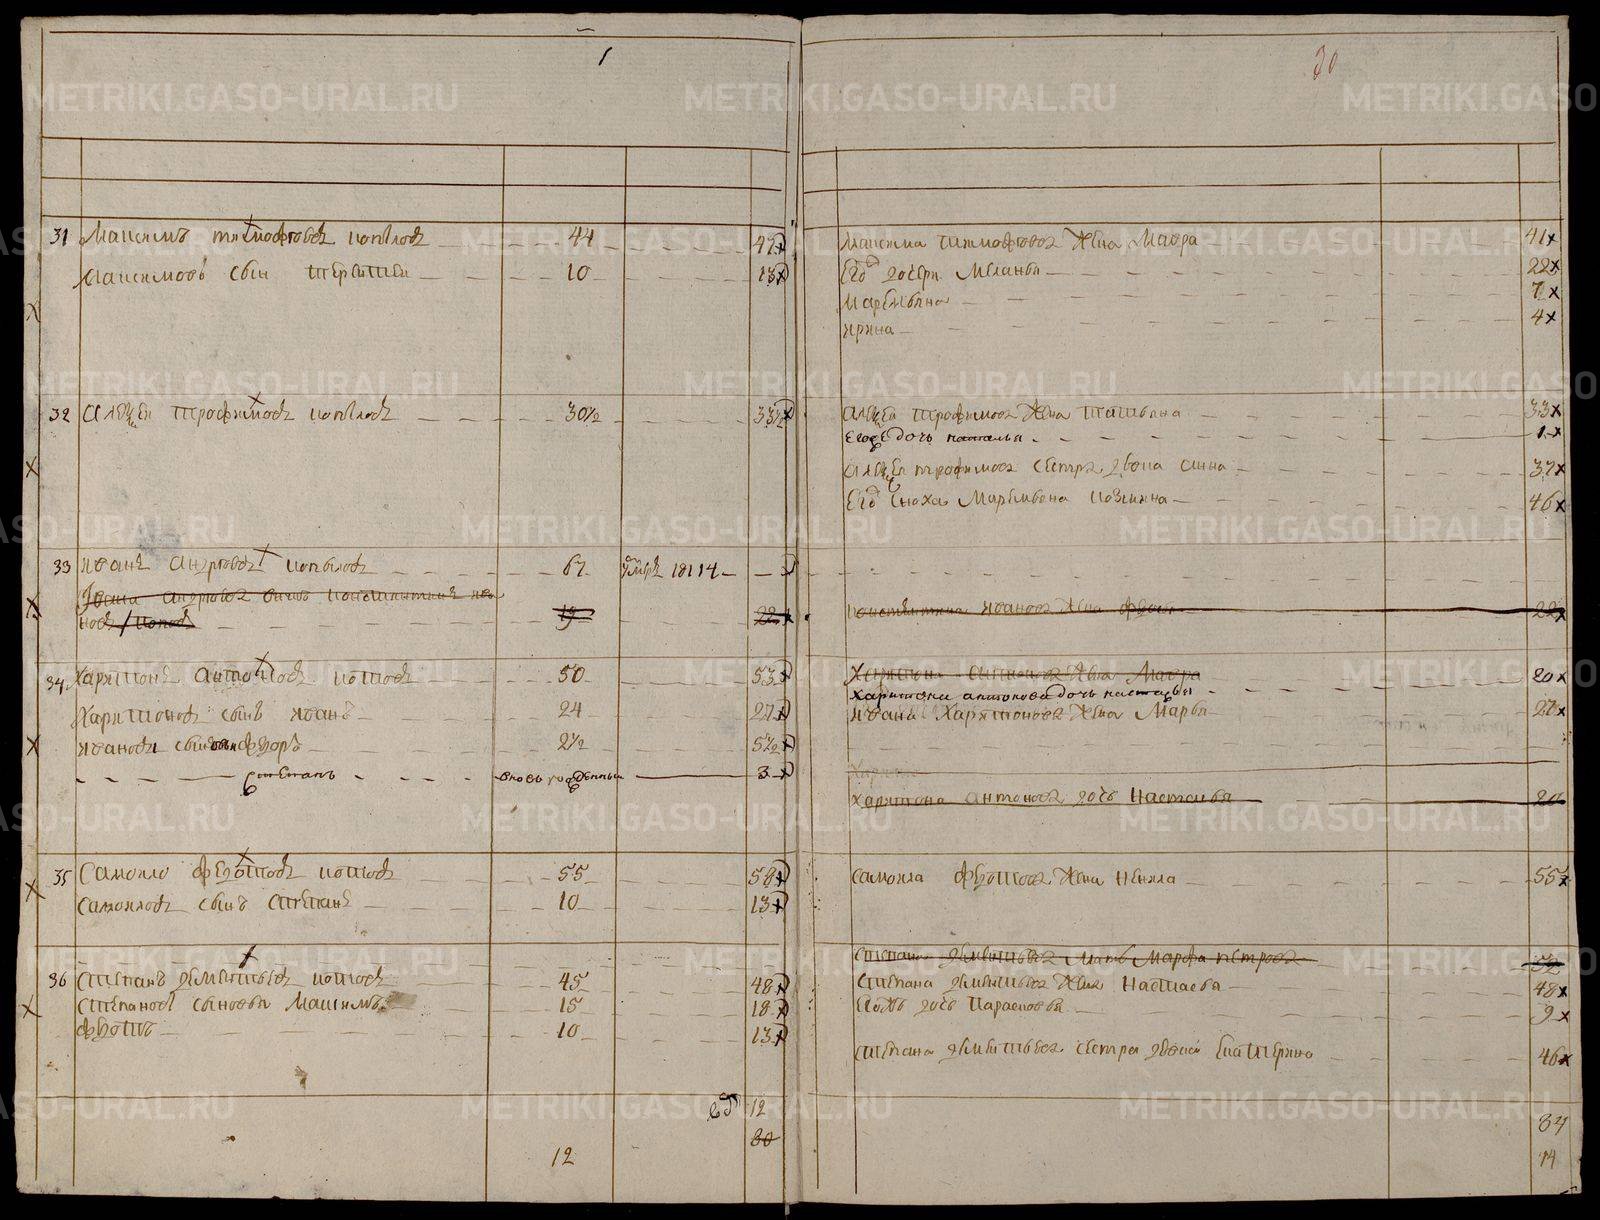 1
30
31 Максимъ тимофѣевъ копыловъ 44 47
Максимовъ сынъ терентей 10 13
32 Алексѣй трофимовъ копыловъ 30½ 33½
33 Иванъ андрѣевъ копыловъ 67 умре 1814
Ивана андрѣева сынъ константинъ ива
новъ 19 22
34 Харитонъ антоновъ котовъ 50 53
Харитоновъ сынъ иванъ 24 27
Ивановы сыновья федоръ 2½ 5½
степанъ вновь рожденный 3
35 Самойло федотовъ котовъ 55 58
Самойловъ сынъ степанъ 10 13
36 Степанъ дементьевъ котовъ 45 48
Степановы сыновья максимъ 15 18
федотъ 10 13
12
80
12
Максима тимофѣева жена мавра 41
Его дочери меланья 22
маремьяна 7
ирина 4
Алексѣя трофимова жена татьяна 33
Его дочь наталья 1
Алексѣя трофимова сестра анна 37
Его сноха маремьяна 46
константина иванова жена 22
Харитона антонова жена мавра 20
харитона антонова дочь настасья
Ивана харитонова жена марья 27
Харитона антонова дочь настасья 20
Самойла федотова жена ненила 55
Степана дементьева мать марфа петрова
Степана дементьева жена настасья 48
дочь парасковья 9
Степана дементьева сестра екатерина 46
14
METRIKI.GASO-URAL.RU